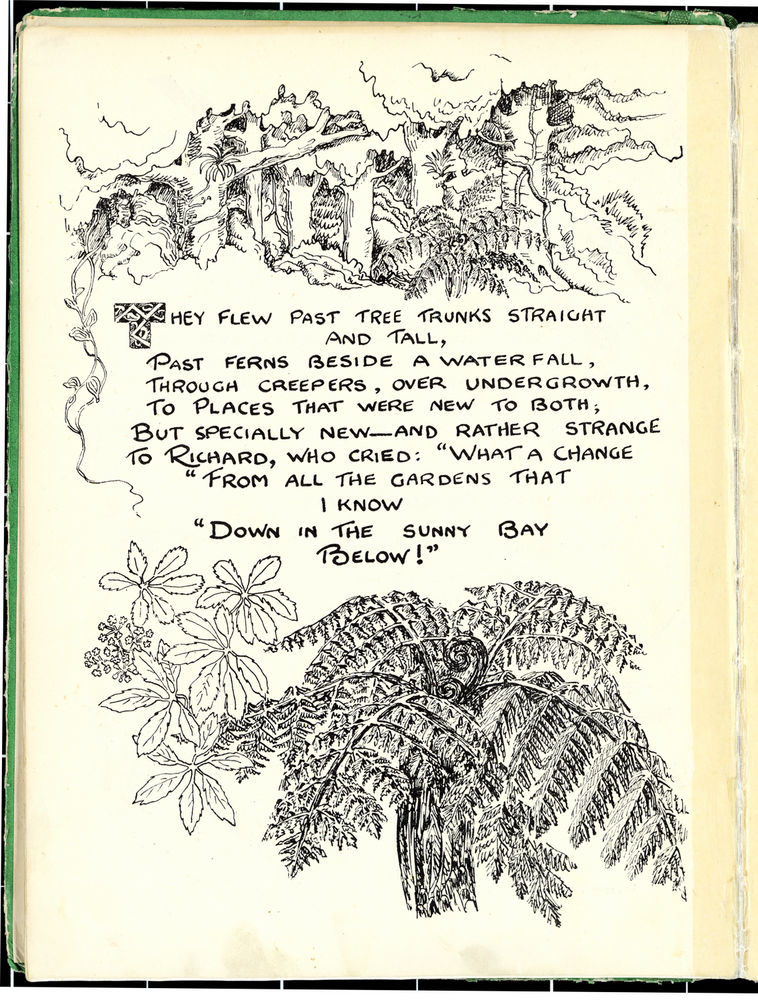 THEY FLEW PAST TREE TRUNKS STRAIGHT
AND TALL,
PAST FERNS BESIDE A WATERFALL,
THROUGH CREEPERS, OVER UNDERGROWTH,
TO PLACES THAT WERE NEW TO BOTH;
BUT SPECIALLY NEW—AND RATHER STRANGE
TO RICHARD, WHO CRIED: "WHAT A CHANGE
"FROM ALL THE GARDENS THAT
I KNOW
"DOWN IN THE SUNNY BAY
BELOW!"